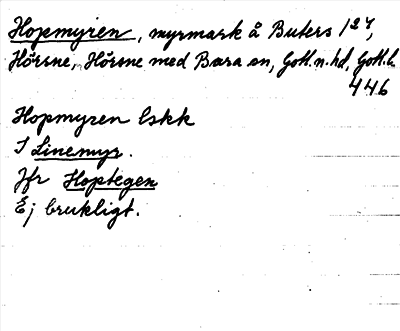 Hopmyren, myrmark å Buters 1 27,
Hörsne, Hörsne med Bara sn, Gotl. n. hd, Gotl. l.
446
Hopmyren Eskk
I Linemyr.
Jfr Hoptegen
Ej brukligt.